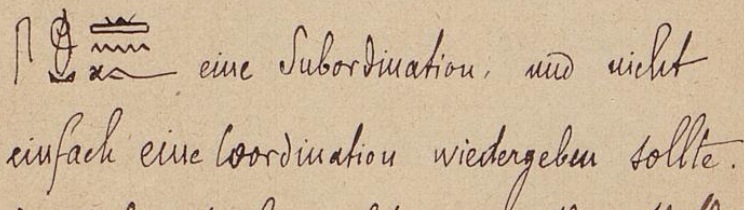 eine Subordination, und nicht
einfach eine Coordination wiedergeben sollte.